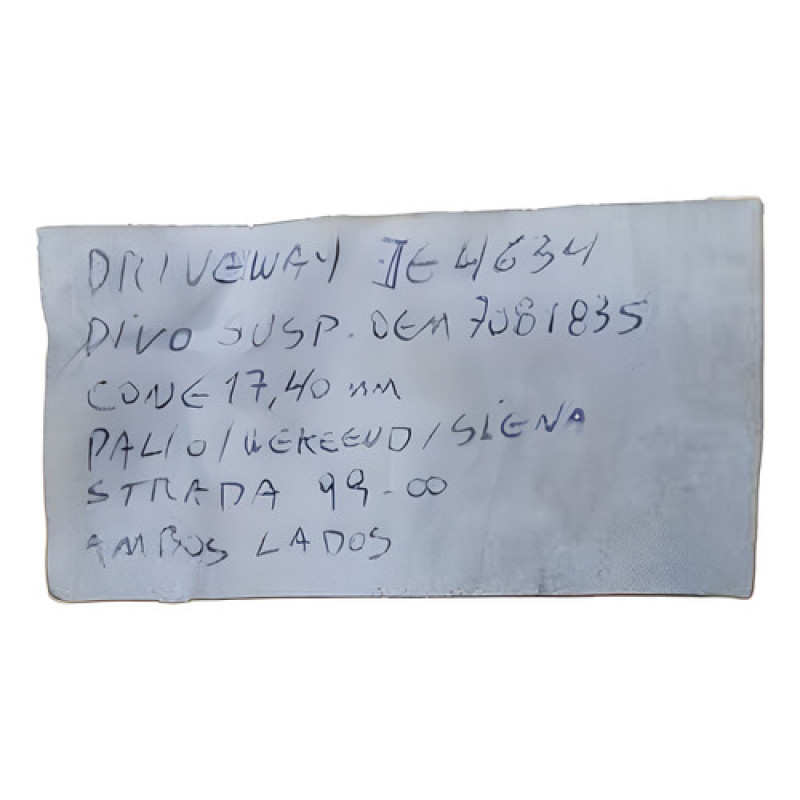 DRIVEWAY JE 4634
PIVO SUSP. OEM 7081835
CONE 17,40 mm
PALIO/WEKEEND/SIENA
STRADA 99-00
AMBOS LADOS